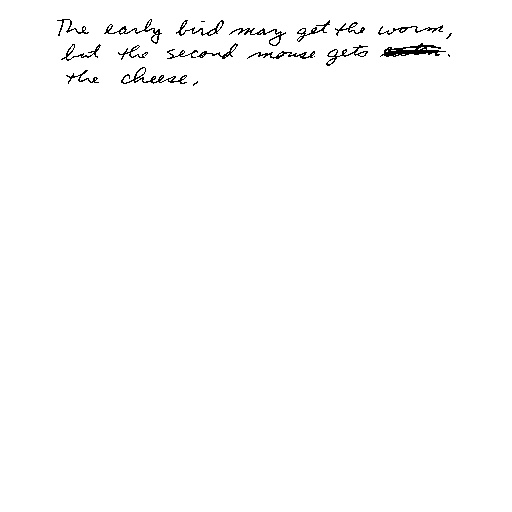 The early bird may get the worm,
but the second mouse gets .
the cheese.